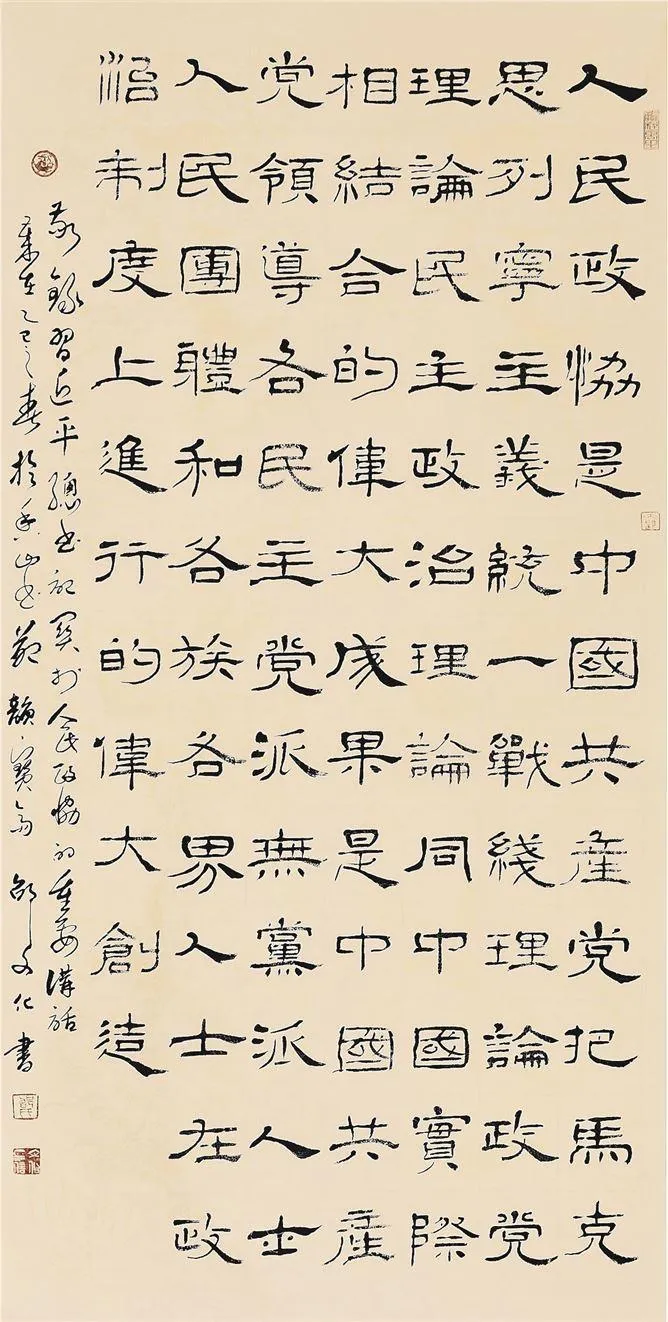 人民政協是中國共產党把馬克
思列寧主義統一戰綫理論政党
理論民主政治理論同中國實際
相結合的偉大成果是中國共產
党領導各民主党派無黨派人士
人民團體和各族各界人士在政
治制度上進行的偉大創造
敬錄習近平總書記關於人民政協的重要講話
在乙巳之春於香山 韻寶斋 文化書